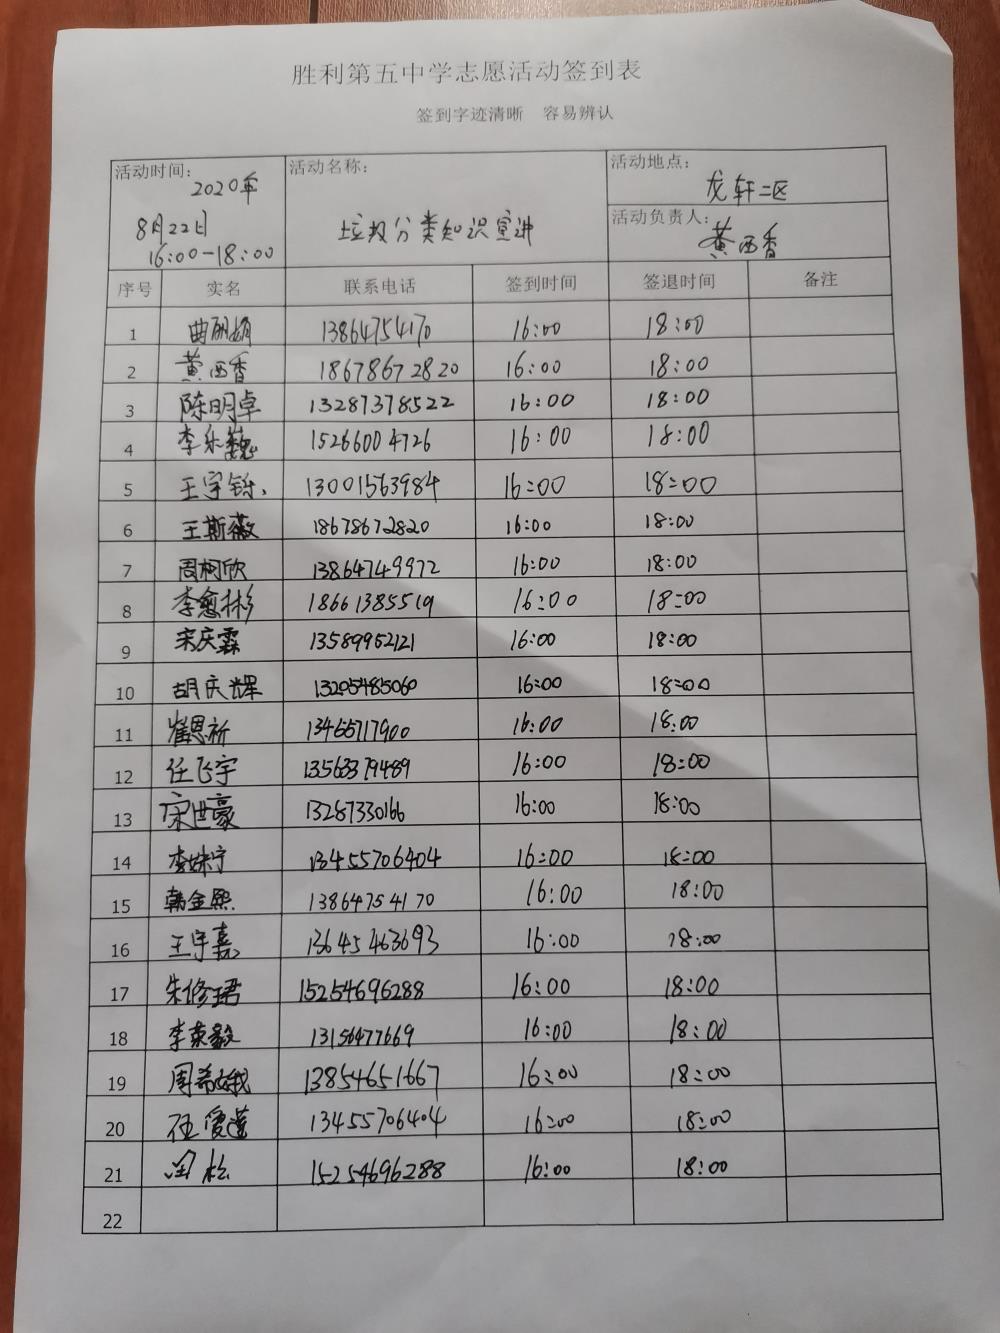 胜利第五中学志愿活动签到表
签到字迹清晰 容易辨认
活动时间: 2020年
8月22日
16:00-18:00
活动名称:
垃圾分类知识宣讲
活动地点:
龙轩二区
活动负责人:
黄西香
序号 实名 联系电话 签到时间 签退时间 备注
1 曲丽娟 13864754170 16:00 18:00
2 黄西香 18678672820 16:00 18:00
3 陈明卓 13287378522 16:00 18:00
4 李乐巍 15266004726 16:00 18:00
5 王宇铄 13001563984 16:00 18:00
6 王斯薇 18678672820 16:00 18:00
7 周柯欣 13864749972 16:00 18:00
8 李愈彬 18661385519 16:00 18:00
9 宋庆霖 13589952121 16:00 18:00
10 胡庆辉 13205485060 16:00 18:00
11 崔恩祈 13455717900 16:00 18:00
12 任飞宇 13563379489 16:00 18:00
13 宋世豪 13287330166 16:00 18:00
14 李姝宁 13455706404 16:00 18:00
15 韩金熙 13864754170 16:00 18:00
16 王宇嘉 13645463693 16:00 18:00
17 朱修珺 15254696288 16:00 18:00
18 李荣毅 13156477669 16:00 18:00
19 周希娥 13854651667 16:00 18:00
20 13455706404 16:00 18:00
21 闫松 15254696288 16:00 18:00
22